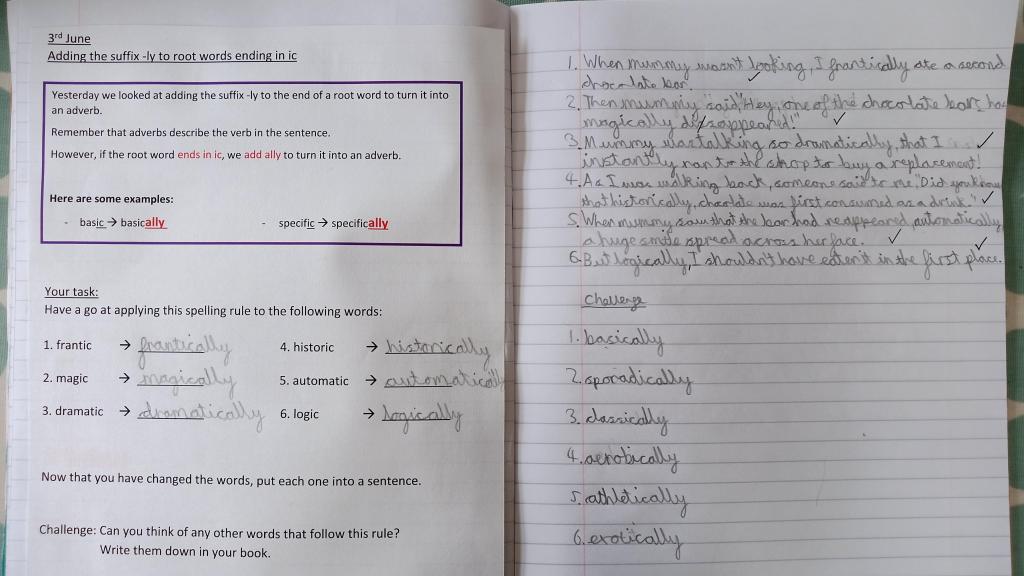 3rd June
Adding the suffix -ly to root words ending in ic
Yesterday we looked at adding the suffix -ly to the end of a root word to turn it into
an adverb.
Remember that adverbs describe the verb in the sentence.
However, if the root word ends in ic, we add ally to turn it into an adverb.
Here are some examples:
- basic → basically - specific → specifically
Your task:
Have a go at applying this spelling rule to the following words:
1. frantic → frantically 4. historic → historically
2. magic → magically 5. automatic → automatically
3. dramatic → dramatically 6. logic → logically
Now that you have changed the words, put each one into a sentence.
Challenge: Can you think of any other words that follow this rule?
Write them down in your book.
1. When mummy wasn't looking, I frantically ate a second
chocolate bar.
2. Then mummy said "Hey, one of the chocolate bars has
magically dissappeared!"
3. Mummy was talking so dramatically, that I
instantly ran to the shop to buy a replacement!
4. As I was walking back, someone said to me "Did you know
that historically, chocolate was first consumed as a drink."
5. When mummy saw that the bar had reappeared, automatically
a huge smile spread across her face.
6. But logically, I shouldn't have eaten it in the first place.
Challenge
1. basically
2. sporadically
3. classically
4. aerobically
5. athletically
6. exotically